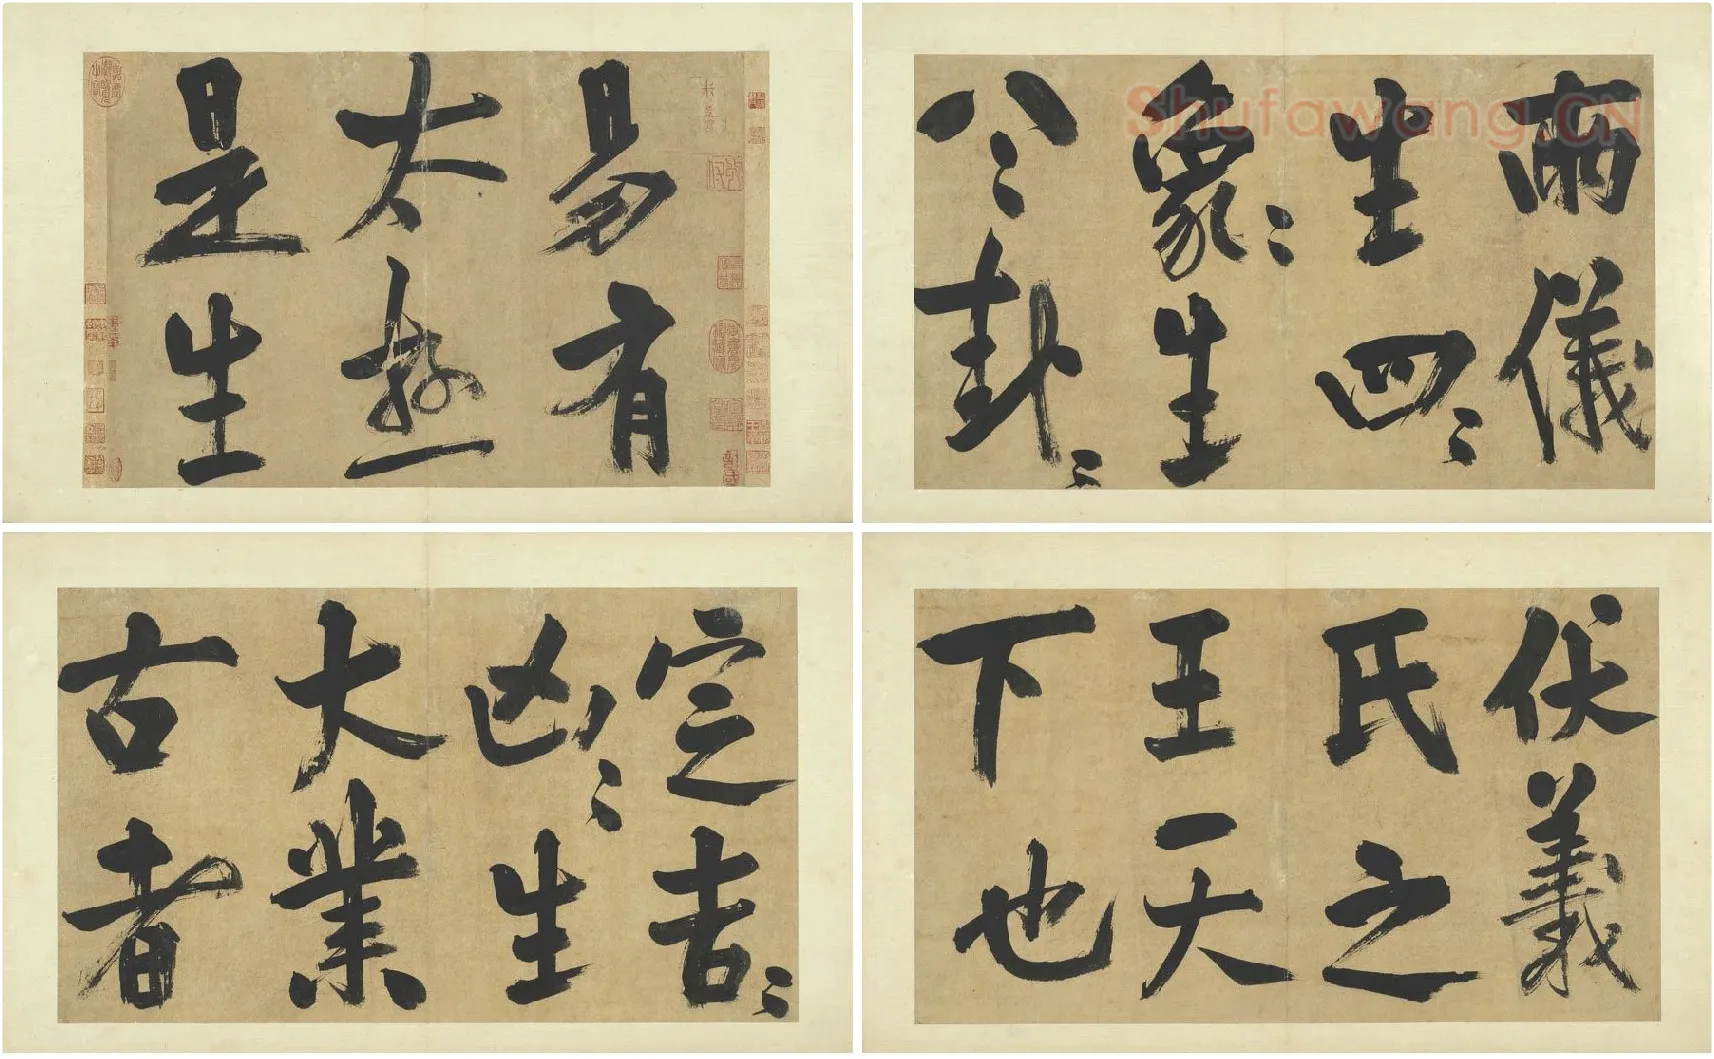 易有
太極
是生
兩儀
生四〻
象〻生
八〻
卦〻
定吉〻
凶〻生
大業
古者
伏羲
氏之
王天
下也
Shufawang.CN